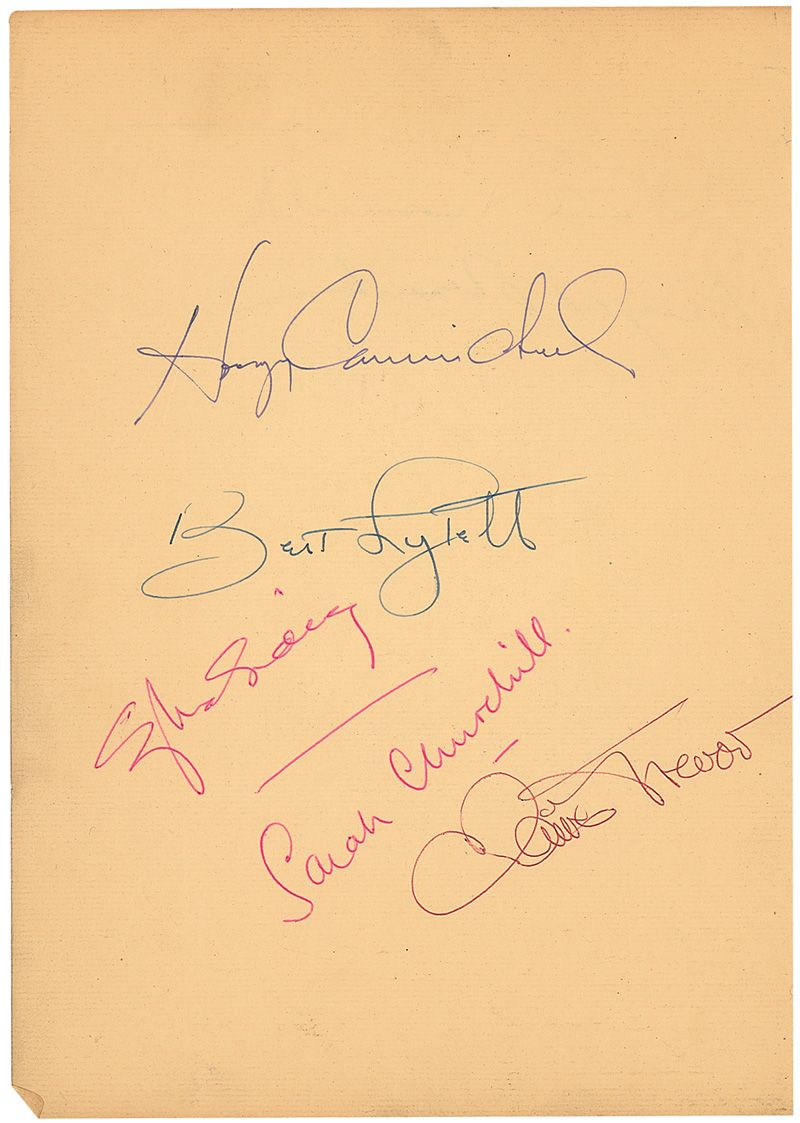 Hoagy Carmichael
Bert Lytell
Sarah Churchill.
Claire Trevor